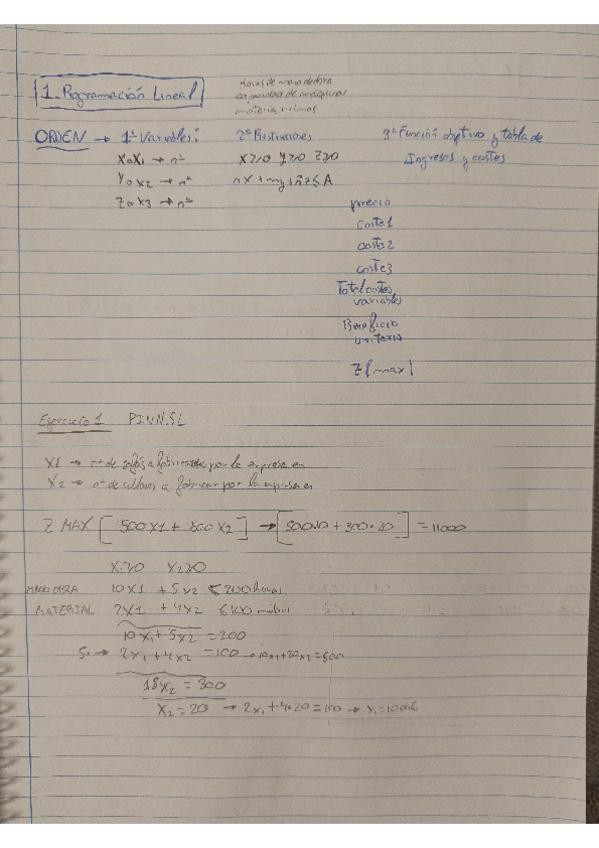 1. Programación Lineal
horas de mano de obra
capacidad de maquinas
materias primas
ORDEN → 1º Variables: 2º Restricciones 3º Función objetivo y tabla de
ingresos y costes
X o X1 → nº X≥0 Y≥0 Z≥0
Y o X2 → nº nX + my + ñz ≤ A
Z o X3 → nº
precio
coste 1
coste 2
coste 3
Total costes
variables
Beneficio
unitario
Z [max]
Ejercicio 1 PINN.SL
X1 → nº de sofás a fabricar por la empresa en
X2 → nº de sillones a fabricar por la empresa en
Z MAX [500X1 + 300X2] → [500·10 + 300·20] = 11000
X1≥0 X2≥0
MANO OBRA 10X1 + 5X2 ≤ 200 horas
MATERIAL 2X1 + 4X2 ≤ 100
10X1 + 5X2 = 200
2X1 + 4X2 = 100 → 10X1 + 20X2 = 500
15X2 = 300
X2 = 20 → 2X1 + 4·20 = 100 → X1 = 10